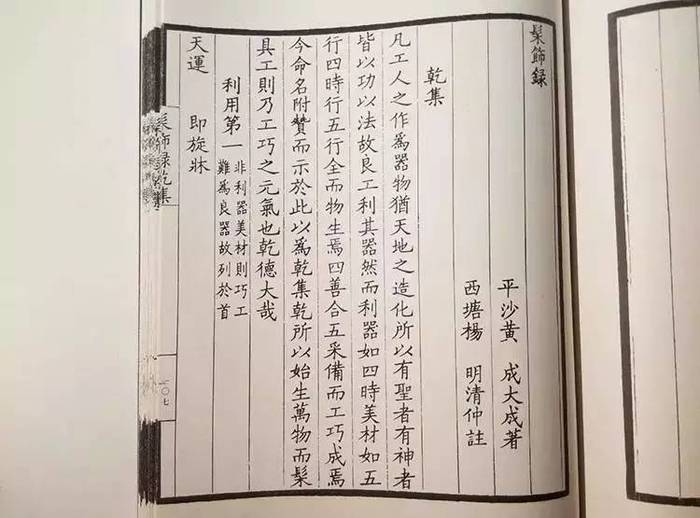 髹飾録
平沙黃 成大成著
西塘楊 明清仲註
乾集
凡工人之作爲器物猶天地之造化所以有聖者有神者
皆以功以法故良工利其器然而利器如四時美材如五
行四時行五行全而物生焉四善合五采備而工巧成焉
今命名附贊而示於此以爲乾集乾所以始生萬物而髹
具工則乃工巧之元氣也乾德大哉
利用第一 非利器美材則巧工
難爲良器故列於首
天運 即旋牀
髹飾録乾集
一〇七